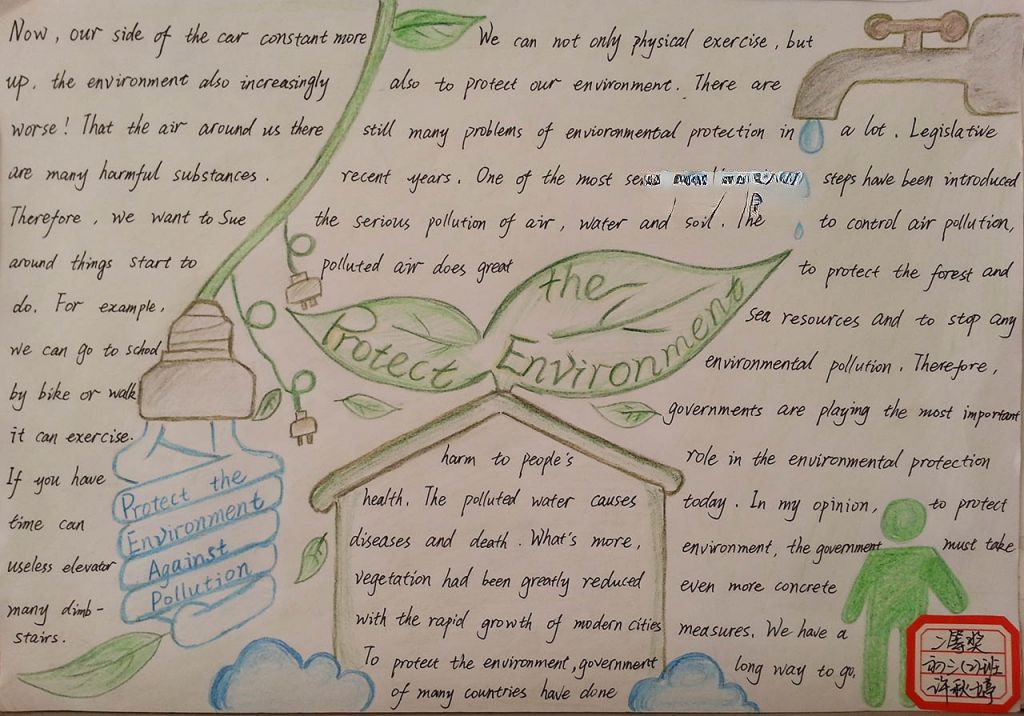 Now, our side of the car constant more
up. the environment also increasingly
worse! That the air around us there
are many harmful substances.
Therefore, we want to Sue
around things start to
do. For example,
we can go to school
by bike or walk
it can exercise.
If you have
time can
useless elevator
many dimb-
stairs.
Protect the
Environment
Against
Pollution
Protect
the
Environment
We can not only physical exercise, but
also to protect our environment. There are
still many problems of envioronmental protection in
recent years. One of the most
the serious pollution of air, water and soil. The
polluted air does great
harm to people's
health. The polluted water causes
diseases and death. What's more,
vegetation had been greatly reduced
with the rapid growth of modern cities
To protect the environment, government
of many countries have done
a lot. Legislative
steps have been introduced
to control air pollution,
to protect the forest and
sea resources and to stop any
environmental pollution. Therefore,
governments are playing the most important
role in the environmental protection
today. In my opinion, to protect
environment, the government must take
even more concrete
measures. We have a
long way to go.
二等奖
初二(2)班
许秋婷